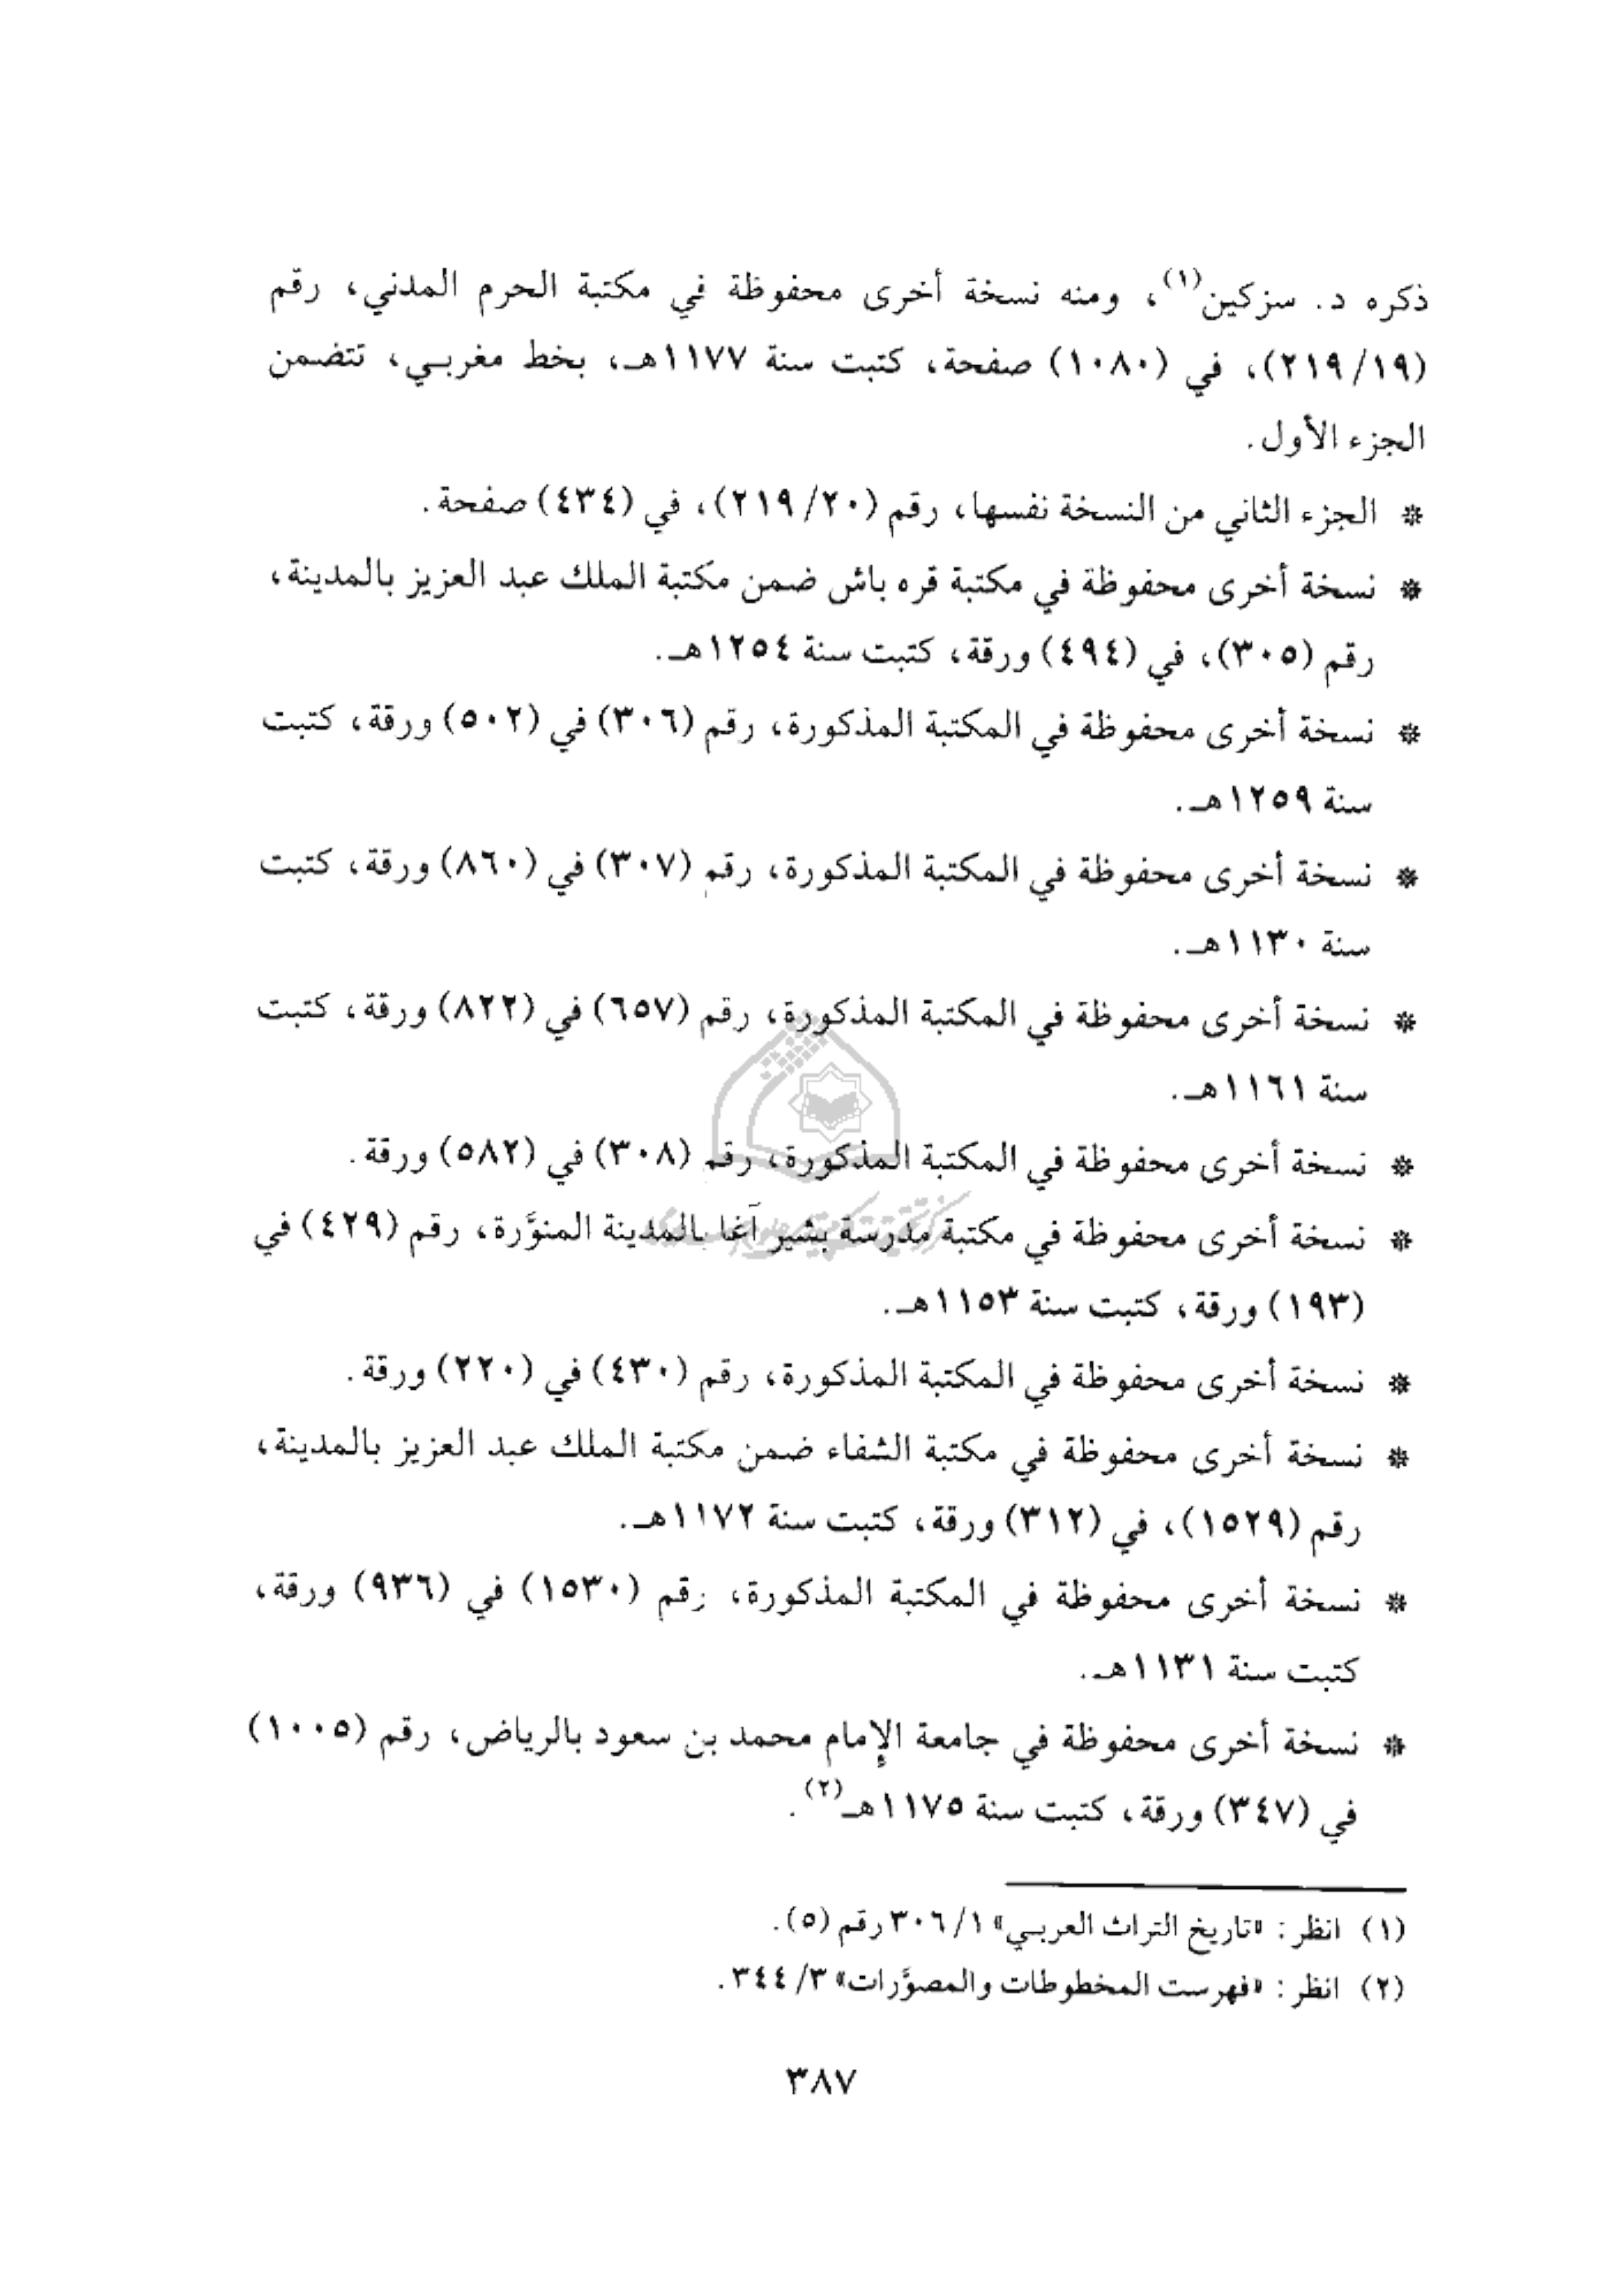 ذكره د. سزكين(١)، ومنه نسخة أخرى محفوظة في مكتبة الحرم المدني، رقم
(٢١٩/١٩)، في (١٠٨٠) صفحة، كتبت سنة ١١٧٧هـ، بخط مغربي، تتضمن
الجزء الأول.
* الجزء الثاني من النسخة نفسها، رقم (٢١٩/٢٠)، في (٤٣٤) صفحة.
* نسخة أخرى محفوظة في مكتبة قره باش ضمن مكتبة الملك عبد العزيز بالمدينة،
رقم (٣٠٥)، في (٤٩٤) ورقة، كتبت سنة ١٢٥٤هـ.
* نسخة أخرى محفوظة في المكتبة المذكورة، رقم (٣٠٦) في (٥٠٢) ورقة، كتبت
سنة ١٢٥٩هـ.
* نسخة أخرى محفوظة في المكتبة المذكورة، رقم (٣٠٧) في (٨٦٠) ورقة، كتبت
سنة ١١٣٠هـ.
* نسخة أخرى محفوظة في المكتبة المذكورة، رقم (٦٥٧) في (٨٢٢) ورقة، كتبت
سنة ١١٦١هـ.
* نسخة أخرى محفوظة في المكتبة المذكورة، رقم (٣٠٨) في (٥٨٢) ورقة.
* نسخة أخرى محفوظة في مكتبة مدرسة بشير آغا بالمدينة المنوَّرة، رقم (٤٢٩) في
(١٩٣) ورقة، كتبت سنة ١١٥٣هـ.
* نسخة أخرى محفوظة في المكتبة المذكورة، رقم (٤٣٠) في (٢٢٠) ورقة.
* نسخة أخرى محفوظة في مكتبة الشفاء ضمن مكتبة الملك عبد العزيز بالمدينة،
رقم (١٥٢٩)، في (٣١٢) ورقة، كتبت سنة ١١٧٢هـ.
* نسخة أخرى محفوظة في المكتبة المذكورة، رقم (١٥٣٠) في (٩٣٦) ورقة،
كتبت سنة ١١٣١هـ.
* نسخة أخرى محفوظة في جامعة الإمام محمد بن سعود بالرياض، رقم (١٠٠٥)
في (٣٤٧) ورقة، كتبت سنة ١١٧٥هـ(٢).
(١) انظر: «تاريخ التراث العربي» ١/ ٣٠٦ رقم (٥).
(٢) انظر: «فهرست المخطوطات والمصوَّرات» ٣/ ٣٤٤.
٣٨٧